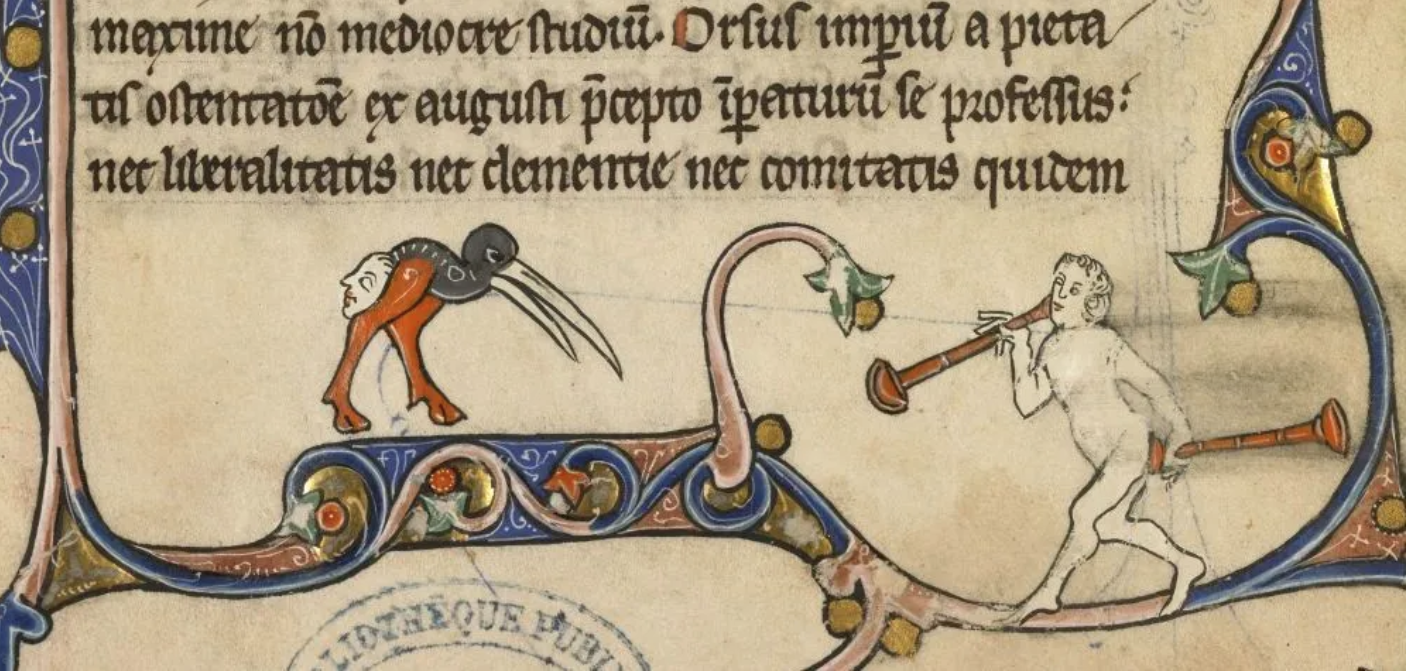 maxime nō mediocre studiū. Orsus imꝑiū a pieta
tis ostentatōe ex augusti p̄cepto īꝑaturū se professus:
nec liberalitatis nec clementie nec comitatis quidem
BLIOTHÈQUE PUBLI